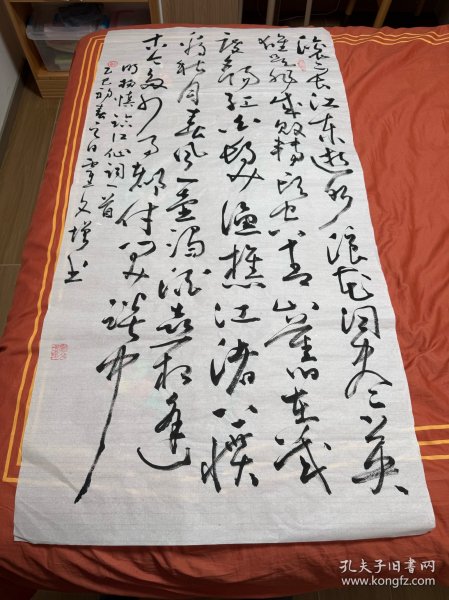 滚滚长江东逝水浪花淘尽英
雄是非成败转头空青山依旧在几
度夕阳红白发渔樵江渚上惯
看秋月春风一壶浊酒喜相逢
古今多少事都付笑谈中
明杨慎临江仙词一首
乙巳初春之日文增书
孔夫子旧书网
www.kongfz.com